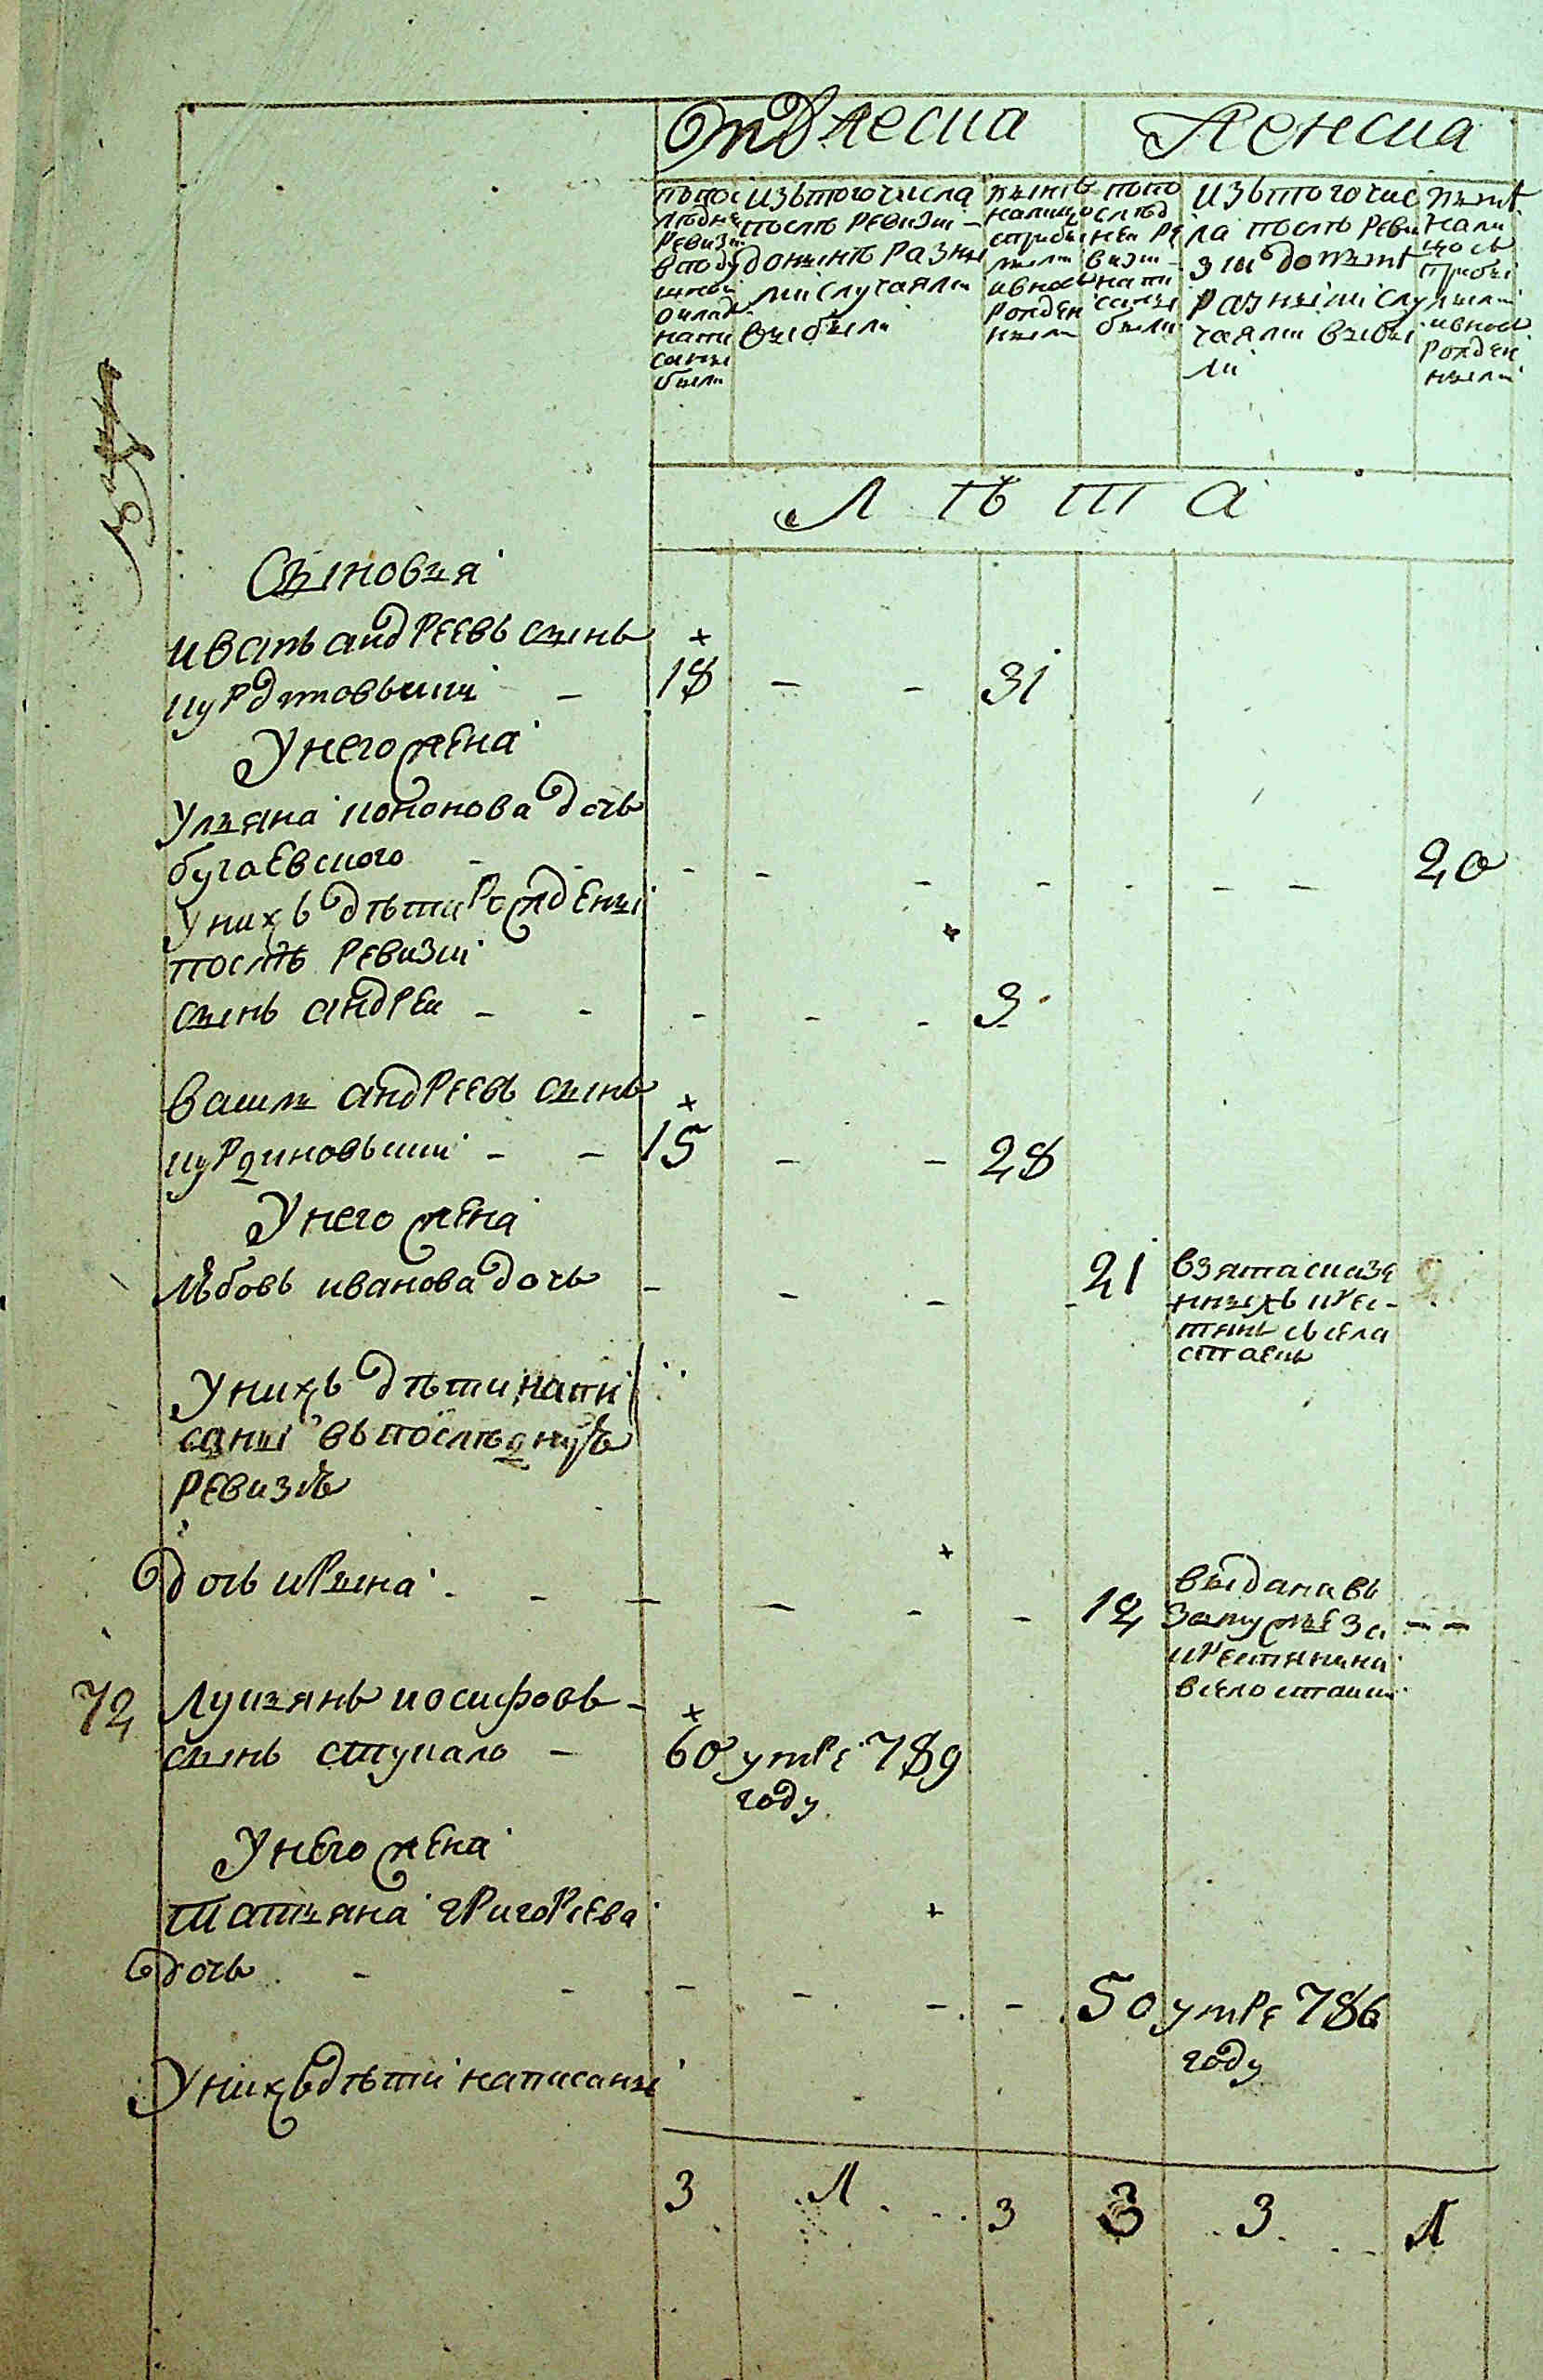 Мужеска Женска
попос
лѣдне
ревизи
в подУ
шной
оклад
напи
саны
были
изътого числа
послѣ ревизіи
до нынѣ разны
ми случаями
выбыли
нынѣ
налицо
с прибы
лыми
и вновь
рожден
ными
попо
слѣд
ней ре
визіи
напи
саны
были
изътого чис
ла послѣ реви
зіи до нынѣ
разными слу
чаями выбы
ли
нынѣ
нали
цо съ
прибы
лыми
и вновь
рожден
ными
Л ѣ т а
Сыновья
иванъ андреевъ сынъ
18 – – 31
У него жена
Ульяна кононова дочь
бугаевского – – – – – – – 20
У нихъ дѣти рожденны
послѣ ревизіи
сынъ андреи – – – – – 3
василь андреевъ сынъ
15 – – 28
У него жена
любовь иванова дочь – – – – 21 взята сказе
нныхъ крес-
тянъ съ села
стаекъ
У нихъ дѣти напи
саны въ послѣдную
ревизію
дочь ирына – – – – – – 12 выдана въ
замужье за – –
крестянина
в село стаики
72 Лукьянъ иосифовъ –
сынъ ступаль – 60 умре 789
году
У него жена
татьяна григорьева
дочь – – – – – – 50 умре 786
году
У нихъ дѣти написаны
3 1 3 3 3 1